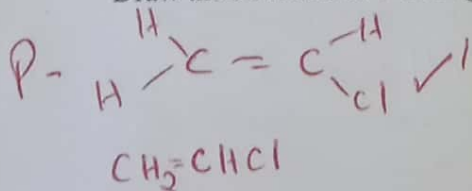 P- H H C = C H Cl ✓1
CH₂=CHCl